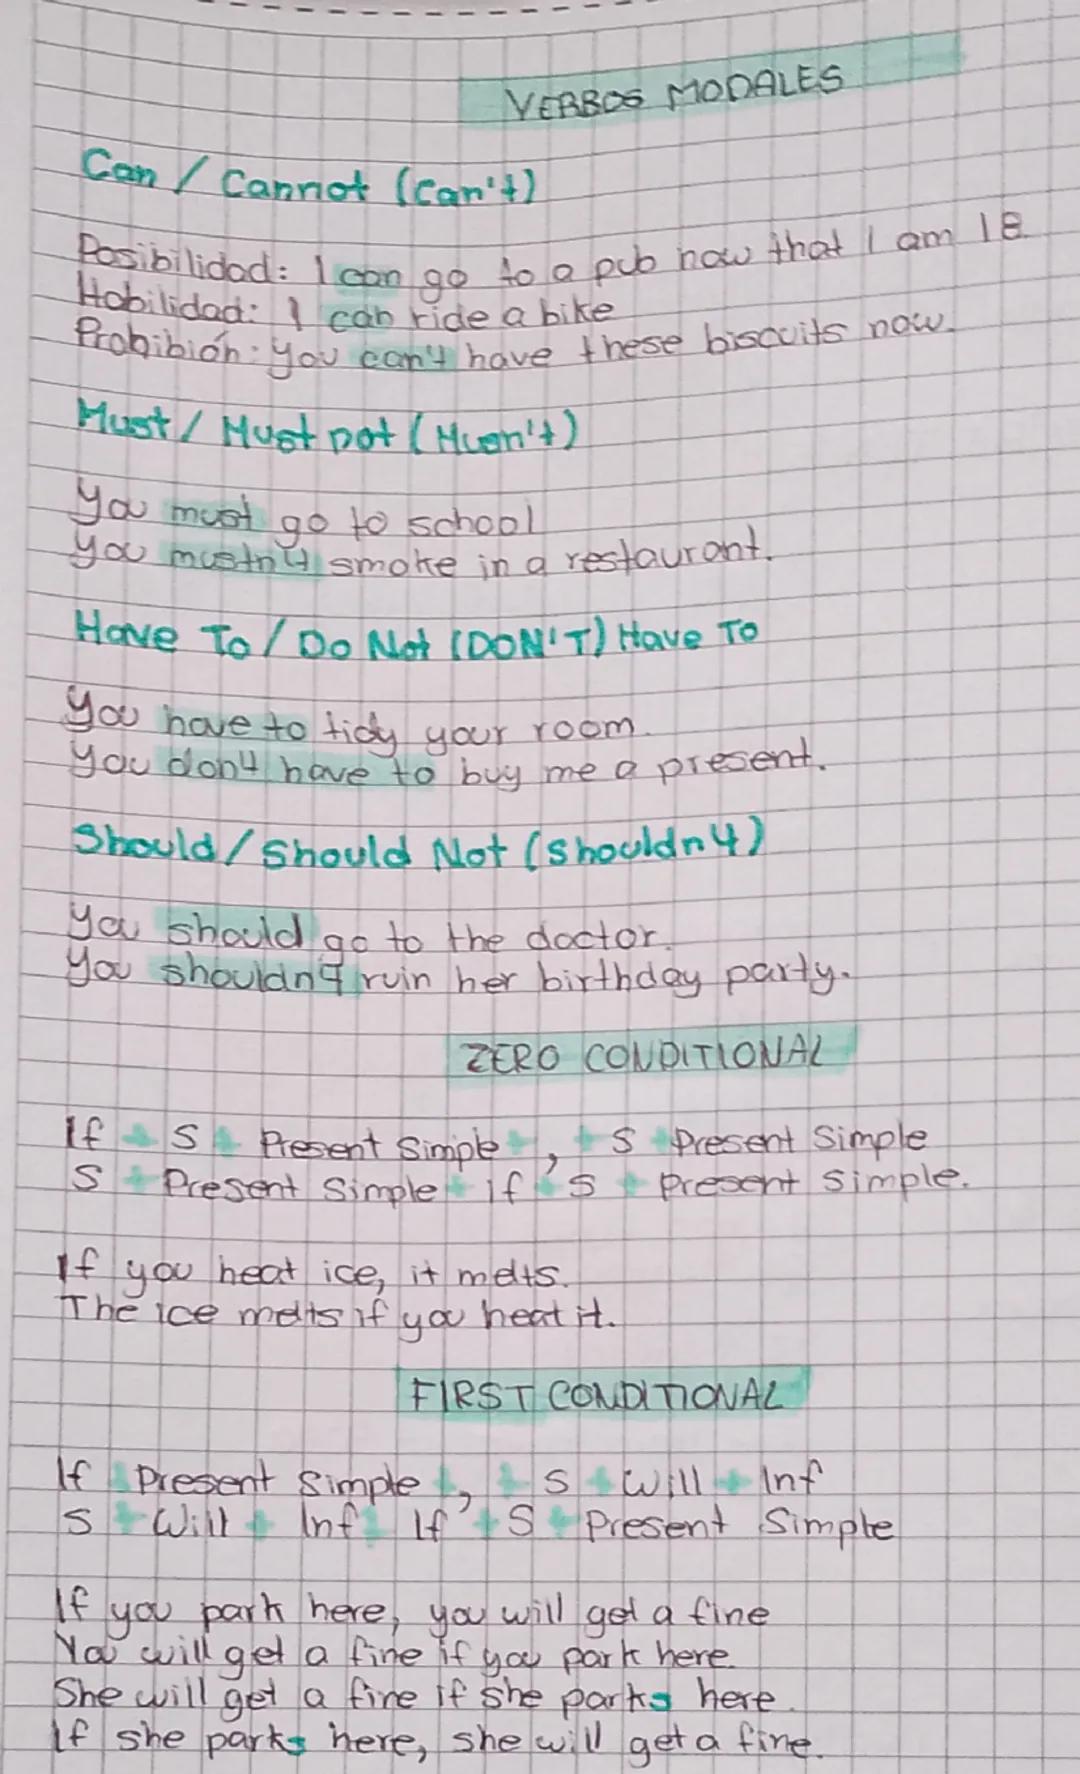 VERBOS MODALES
Can / Cannot (Can't)
Posibilidad: I can go to a pub now that I am 18
Habilidad: I can ride a bike
Prohibión: you can't have these biscuits now.
Must / Must not (Musn't)
you must go to school
you mustn't smoke in a restaurant.
Have To / Do Not (DON'T) Have To
you have to tidy your room.
you don't have to buy me a present.
Should / Should Not (Shouldn't)
you should go to the doctor.
you shouldn't ruin her birthday party.
ZERO CONDITIONAL
If + S + Present Simple + , + S + Present Simple
S + Present Simple + if + S + Present Simple.
If you heat ice, it melts.
The ice melts if you heat it.
FIRST CONDITIONAL
If + Present Simple + , + S + Will + Inf
S + Will + Inf + If + S + Present Simple
If you park here, you will get a fine
You will get a fine if you park here.
She will get a fine if she parks here.
If she parks here, she will get a fine.